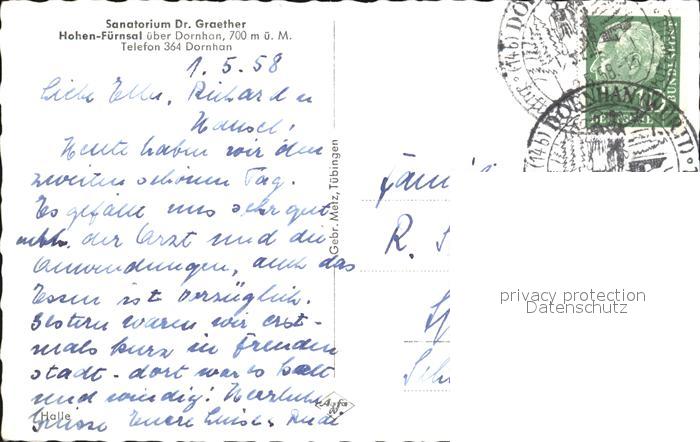 Sanatorium Dr. Graether
Hohen-Fürnsal über Dornhan, 700 m ü. M.
Telefon 364 Dornhan
1.5.58
Liebe Ella, Richard u
Hansel!
Heute haben wir den
zweiten schönen Tag.
Es gefällt uns sehr gut
der Arzt und die
Anwendungen, auch das
Essen ist vorzüglich.
Gestern waren wir erst-
mals kurz in Freuden
stadt - dort war es kalt
und windig! Herzliche
Grüsse Euere Luise u. Rudi
Halle
Gebr. Metz, Tübingen
Fami
R. S
(14b) DORNHAN (WÜRTT)
BUNDESPOST
DEUTSCHE
privacy protection
Datenschutz